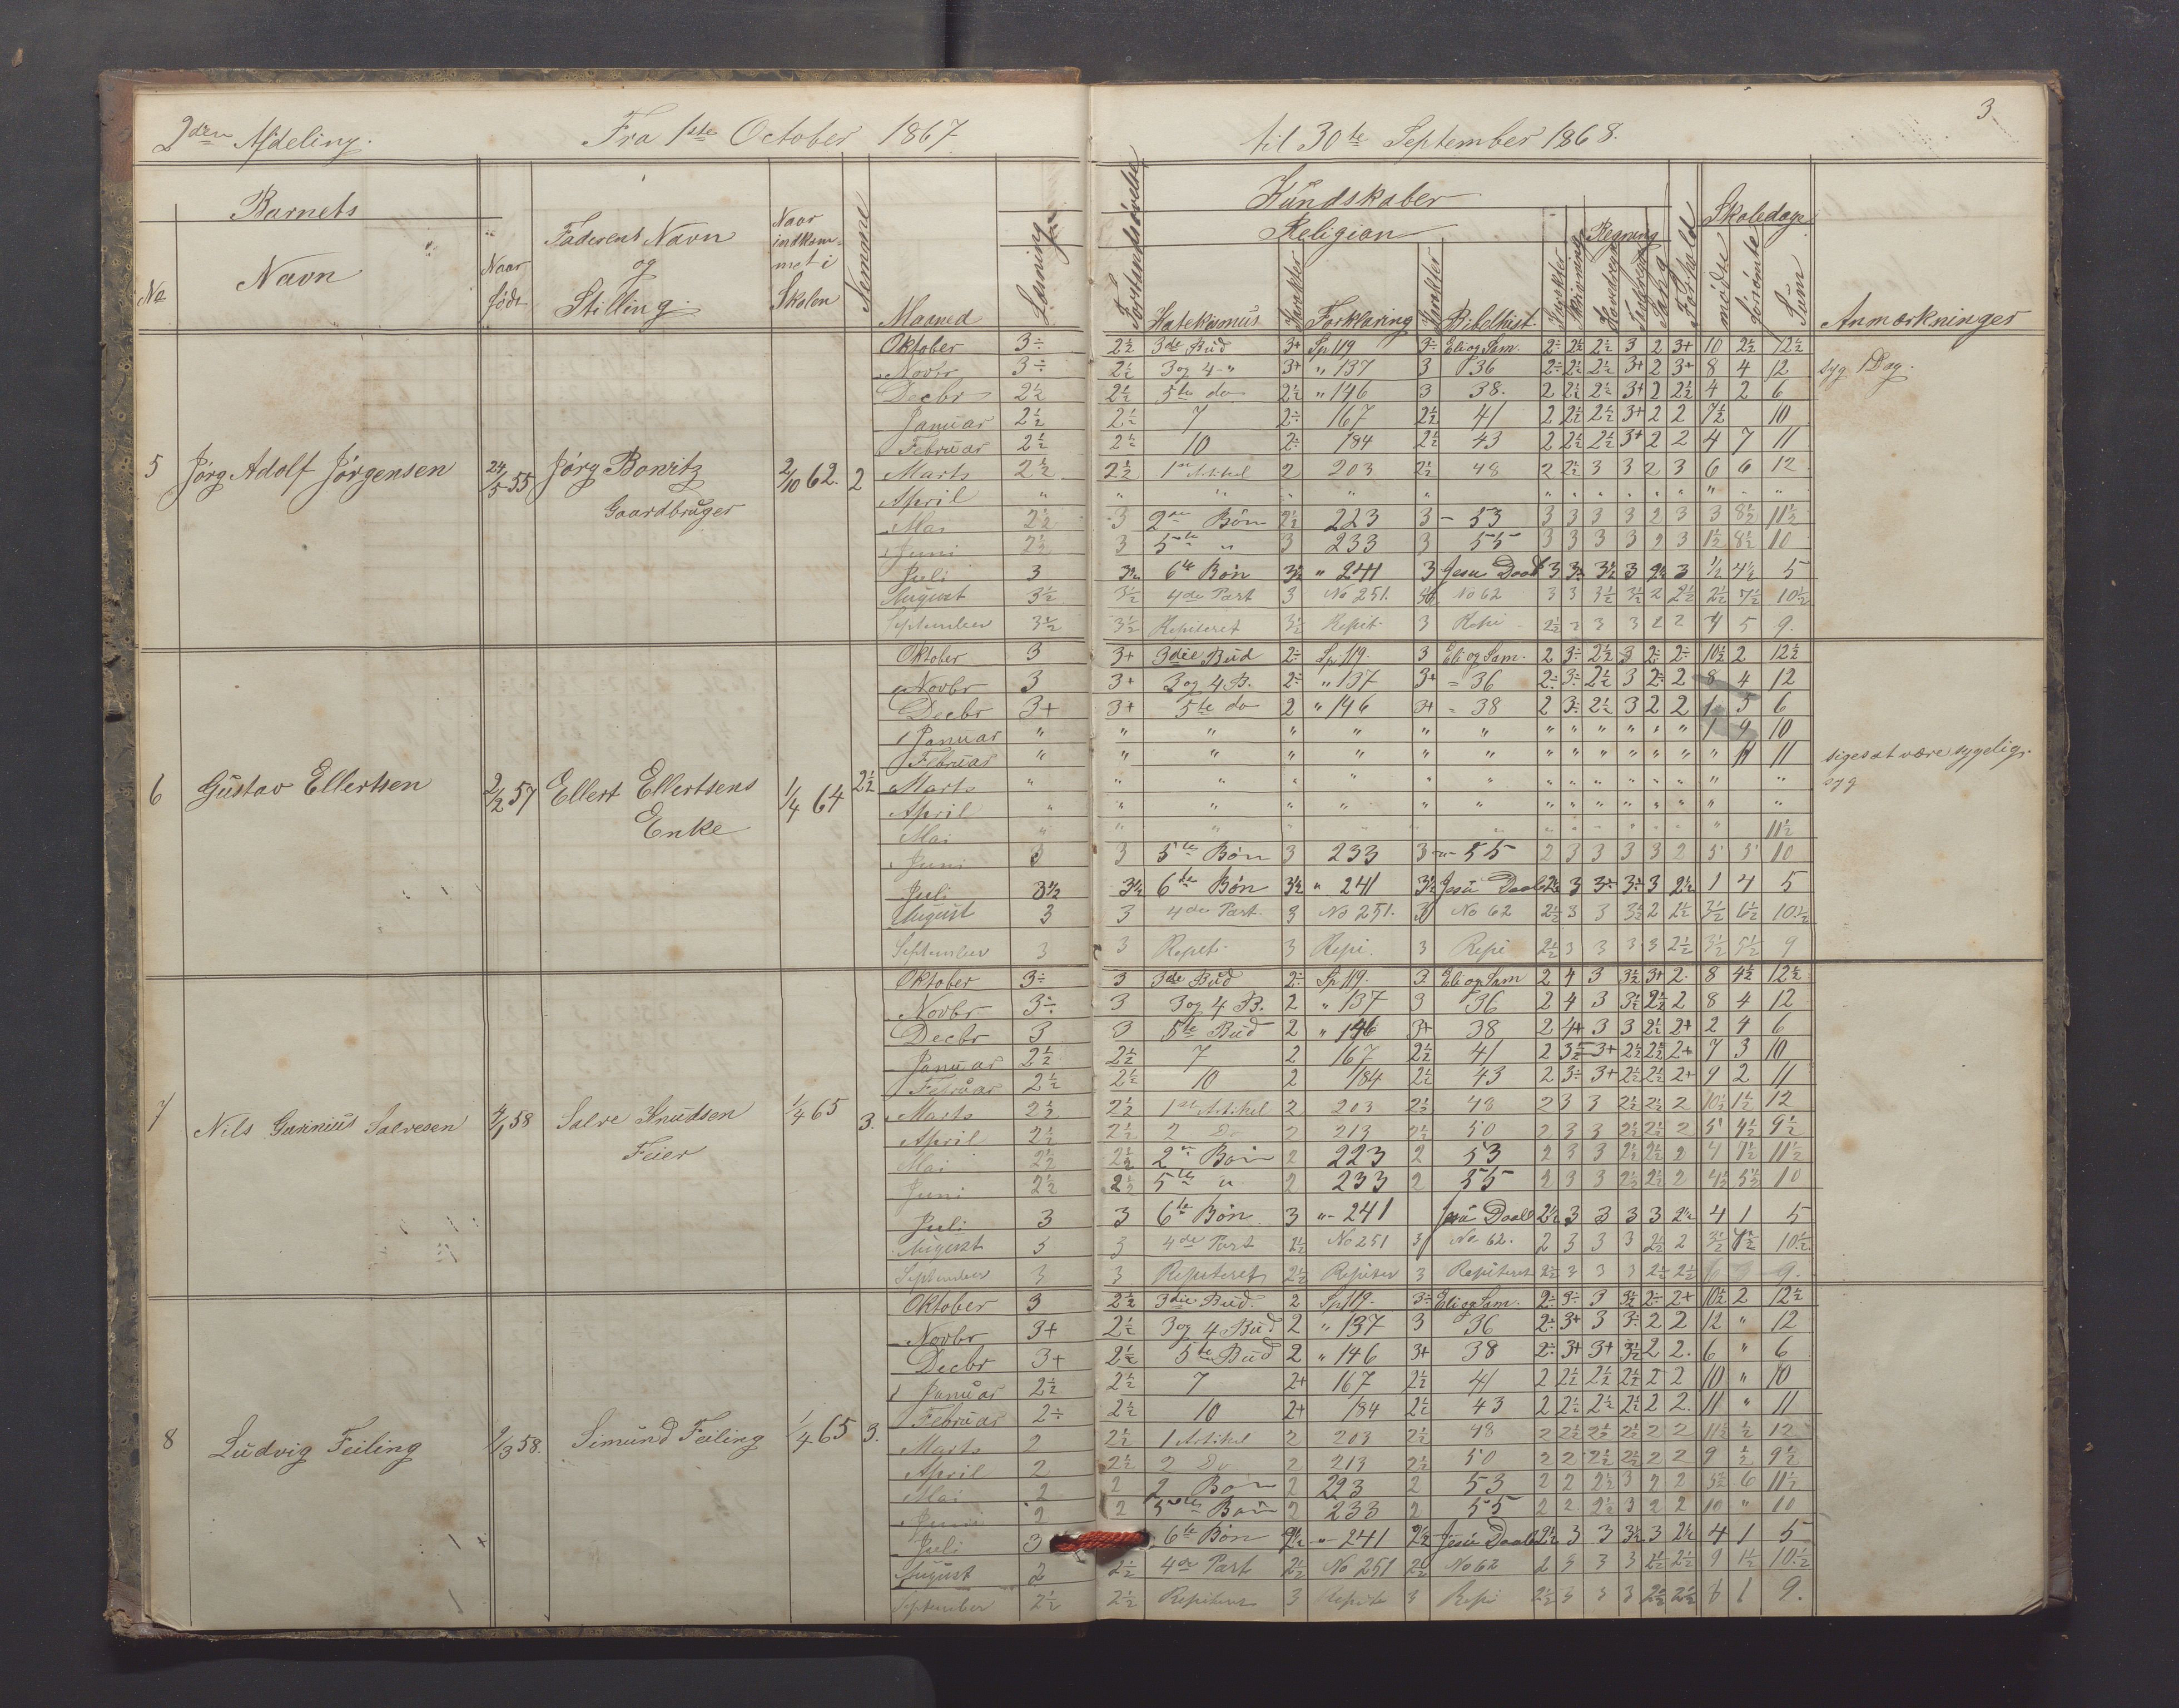 3
2den Afdeling. Fra 1ste October 1867 til 30te September 1868.
Barnets
No Navn
Naar født
Faderens Navn og Stilling
Naar indkommet i Skolen
Nemme
Maaned
Læsning
Forstandsøvelse
Kundskaber
Religion
Katekismus Karakter Forklaring Karakter Bibelhist. Karakter
Skrivning
Regning
Hovedregn Tavleregn
Sang
Forhold
Skoledage
mødte forsømte Sum
Anmærkninger
5 Jörg Adolf Jörgensen 24/5 55 Jörg Bonitz Gaardbruger 2/10 62. 2
Oktober 3÷ 2½ 3de Bud 3+ Sp 119 3÷ Eli og Sam. 2÷ 2½ 2½ 3 2 3+ 10 2½ 12½
Novbr 3÷ 2½ 3 og 4 " 3+ " 137 3 36 2÷ 2½ 2½ 3+ 2 3+ 8 4 12 syg 1 Dag.
Decbr 2½ 2½ 5te do 2½ " 146 3 38. 2 2½ 2½ 3+ 2 2½ 4 2 6
Januar 2½ 2½ 7 2÷ 167 2½ 41 2 2½ 2½ 3+ 2 2 7½ 10
Februar 2½ 2½ 10 2÷ 184 2½ 43 2 2½ 2½ 3+ 2 2 4 7 11
Marts 2½ 2½ 1ste Artikel 2 203 2½ 48 2 2½ 3 3 2 3 6 6 12
April " " " " " " " " " " " " " " "
Mai 2½ 3 2den Bön 2½ 223 3 - 53 3 3 3 3 2 3 3 8½ 11½
Juni 2½ 3 5te " 3 233 3 55 3 3 3 3 2 3 1½ 8½ 10
Juli 3 3½ 6te Bön 3½ " 241 3 Jesu Daab 3 3÷ 3½ 3 2½ 3 ½ 4½ 5
August 3½ 3½ 4de Part 3 No 251. No 62 3 3 3½ 3½ 2 2½ 2½ 7½ 10½
September 3½ 3½ Repiteret 3½ Repit. 3 Repi 2½ 2 3 3 2 2 4 5 9.
6 Gustav Ellertsen 2/2 57 Ellert Ellertsens Enke 1/4 64 2½
Oktober 3 3+ 3die Bud 2÷ Sp. 119. 3 Eli og Sam. 2 3÷ 2½ 3 2÷ 2÷ 10½ 2 12½
Novbr 3 3+ 3 og 4 B. 2÷ " 137 3+ = 36 2÷ 3÷ 2½ 3 2÷ 2 8 4 12
Decbr 3+ 3+ 5te do 2 " 146 3+ = 38 2 3÷ 2½ 3 2 2 1 5 6
Januar " " " " " " " " " " " " " 1 9 10
Februar " " " " " " " " " " " " " " 11 11 siges at være sygelig.
Marts " " " " " " " " " " " " " " " syg
April " " " " " " " " " " " " " " "
Mai " " " " " " " " " " " " " " 11½
Juni 3 3 5te Bön 3 233 3 -"- 55 2 3 3 3 3 2 5 5 10
Juli 3½ 3½ 6te Bön 3½ " 241 3½ Jesu Daab 2½ 3 3÷ 3÷ 3 2½ 1 4 5
August 3 3 4de Part. 3 No 251. 3 No 62 2½ 3 3 3½ 2 2½ 3½ 6½ 10½
September 3 3 Repet. 3 Repi. 3 Repi 2½ 3 3 3 3 2½ 3½ 5½ 9
7 Nils Gunnius Salvesen 4/1 58 Salve Knudsen Feier 1/4 65 3.
Oktober 3÷ 3 3de Bud 2÷ Sp 119. 3 Eli og Sam 2 4 3 3½ 3+ 2. 8 4½ 12½
Novbr 3÷ 3 3 og 4 B. 2 " 137 3 36 2 4 3 3½ 2½ 2 8 4 12
Decbr 3 3 5te Bud 2 " 146 3+ 38 2 4+ 3 3 2½ 2+ 2 4 6
Januar 2½ 2½ 7 2 167 2½ 41 2 3½ 3+ 2½ 2½ 2+ 7 3 10
Februar 2½ 2½ 10 2 184 2½ 43 2 3÷ 3+ 2½ 2½ 2+ 9 2 11
Marts 2½ 2½ 1ste Artikel 2 203 2½ 48 2 3 3 2½ 2½ 2 10½ 1½ 12
April 2½ 2½ 2 Do 2 213 2½ 50 2 3 3 2½ 2½ 2 5 4½ 9½
Mai 2½ 2½ 2den Bön 2 223 2 53 2 3 3 2½ 2½ 2 4 7½ 11½
Juni 2½ 2½ 5te " 2 233 2 55 2 3 3 2½ 2½ 2 4½ 5½ 10
Juli 3 3 6te Bön 3 "- 241 Jesu Daab 2½ 3 3 3 3 2½ 4 1 5
August 3 3 4de Part 2½ No 251 3 No 62. 2 3 3 3 2½ 2 3½ 7½ 10½
September 3 3 Repeteret 2½ Repiter 3 Repiteret 2½ 3 3 3 2½ 2½ 6 3 9.
8 Ludvig Feiling 2/3 58. Simund Feiling 1/4 65 3.
Oktober 3 2½ 3die Bud. 2 Sp 119. 3÷ Eli og Sam. 2÷ 3÷ 3 3½ 2÷ 2+ 10½ 2 12½
Novbr 3+ 2½ 3 og 4 Bud 2 " 137 3 36 2÷ 3+ 3 3÷ 2 2 12 " 12
Decbr 3+ 2½ 5te Bud 2 " 146 3+ 38 2÷ 3+ 3+ 3½ 2 2. 6 " 6
Januar 2½ 2½ 7 2+ 167 2½ 41 2 2½ 2½ 2½ 2 2 10 " 10
Februar 2÷ 2½ 10 2+ 184 2½ 43 2 2½ 2½ 2½ 2 2. 11 " 11
Marts 2 2½ 1 Artikel 2 203 2½ 48 2 2½ 2½ 2½ 2 2 11½ ½ 12
April 2 2½ 2 Do 2 213 2½ 50 2 2 2½ 2½ 2 2 9 ½ 9½
Mai 2 2 2 Bön 2 223 2 53 2 2 2½ 3 2 2 5½ 6 11½
Juni 2 2 5te Bön 2 233 2 55 2 2 2½ 3 2 2 10 " 10
Juli 3 6te Bön 2½ "- 241 2½ Jesu Daab 2½ 3 3 3½ 3 2½ 4 1 5
August 2 2½ 4de Part 2½ No 251 2½ No 62 2 3 3 3 2½ 2½ 9 1½ 10½
September 2½ 2½ Repiteret 3 Repite 3 Repi 2½ 3 3 3 2½ 2½ 8 1 9.